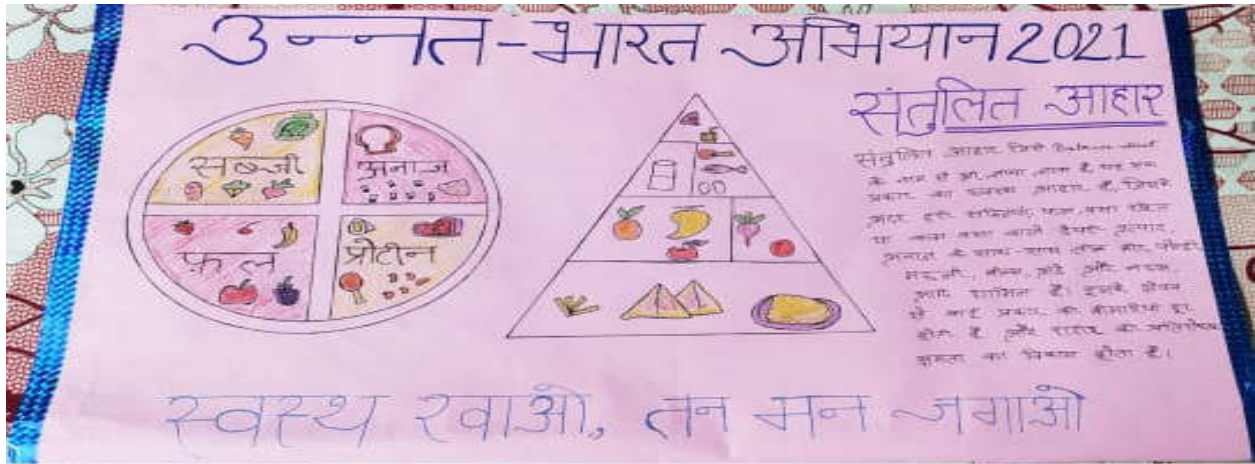 उन्नत-भारत अभियान 2021
संतुलित आहार
सब्जी
अनाज
फ़ल
प्रोटीन
संतुलित आहार जिसे Balance
के नाम से भी जाना जाता है, यह
प्रकार का स्वस्थ आहार है, जिसके
अंदर हरी सब्जियां, फल, वसा रहित
या कम वसा वाले डेयरी उत्पाद,
अनाज के साथ-साथ
मछली, बीन्स, अंडे और नट्स,
आदि शामिल हैं। इसके सेवन
से कई प्रकार की बीमारियां दूर
होती हैं और शरीर की प्रतिरोधक
क्षमता का विकास होता है।
स्वस्थ खाओ, तन मन जगाओ